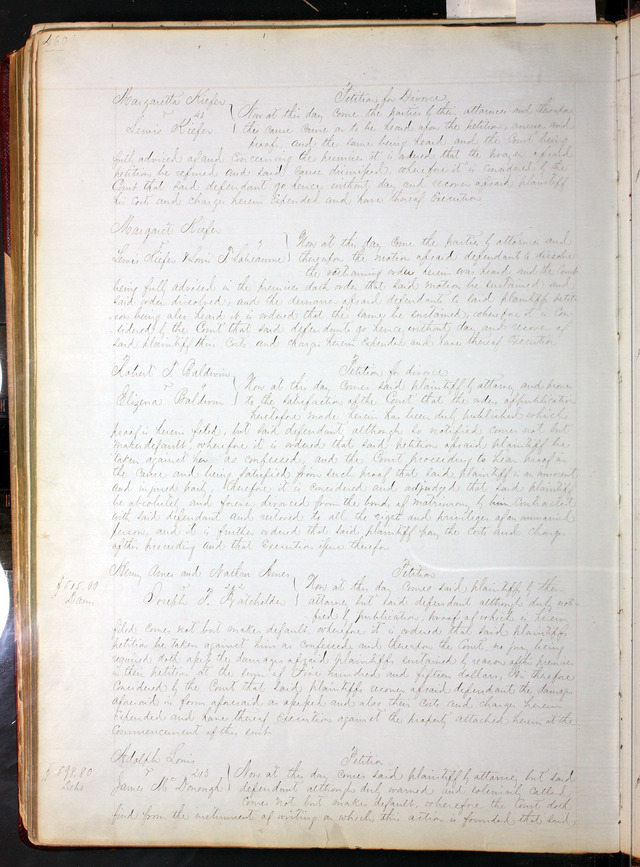 460
Margaretta Kiefer Petition for Divorce
vs 41 Now at this day come the parties by their attornies and thereby
Lewis Kiefer the cause came on to be heard upon the petition answer and
proofs and the same being heard and the Court being
fully advised of and concerning the premises it is adjudged that the prayer of said
petition be refused and said cause dismissed wherefore it is considered by the
Court that said defendant go hence without day and recover of said plaintiff
his costs and charges herein Expended and have thereof Execution
Margaret Kiefer
vs Now at this day come the parties by attorneys and
Lewis Kiefer & Louis T. Labeaume thereupon the motion of said defendants to dissolve
the restraining order herein was heard and the Court
being fully advised in the premises doth order that said motion be sustained and
said order dissolved, and the demurrer of said defendants to said plaintiffs petit-
ion being also heard it is ordered that the same be sustained, wherefore it is con-
sidered by the Court that said defendants go hence without day and recover of
said plaintiff their Costs and charges herein Expended and have thereof Execution
Robert T. Baldwin Petition for divorce
vs Now at this day comes said plaintiff by attorney and proves
Elizena Baldwin to the satisfaction of the Court that the order of publication
heretofore made herein has been duly published which
proof is herein filed, but said defendant, although so notified, comes not but
makes default, wherefore it is ordered that said petition of said plaintiff be
taken against her as confessed, and the Court proceeding to hear proof in
the cause and being satisfied from such proof that said plaintiff is an innocent
and injured party, therefore it is considered and adjudged that said plaintiff
be absolutely and forever divorced from the bonds of matrimony by him contracted
with said defendant and restored to all the rights and privileges of an unmarried
person, and it is further ordered that said plaintiff pay the Costs and charges
of this proceeding and that Execution issue therefor
Ames and Nathan Ames Petition
$515.00 vs 2 Now at this day comes said plaintiffs by their
Dam. Joseph T. Batchelder attorney but said defendant although duly noti-
fied by publication, proof of which is herein
filed comes not but makes default wherefore it is ordered that said plaintiffs
petition be taken against him as confessed and thereupon the Court, no jury being
required doth assess the damages of said plaintiffs sustained by reason of the premises
in their petition at the sum of Five hundred and fifteen dollars, It is therefore
considered by the Court that said plaintiffs recover of said defendant the damages
aforesaid in form aforesaid as assessed and also their Costs and charges herein
Expended and have thereof Execution against the property attached herein at the
commencement of this suit
Adolph Louis Petition
$598.80 vs 213 Now at this day comes said plaintiff by attorney but said
Debt James McDonough defendant although duly warned and solemnly called
comes not but makes default, wherefore the Court doth
find from the instrument of writing on which this action is founded, that said